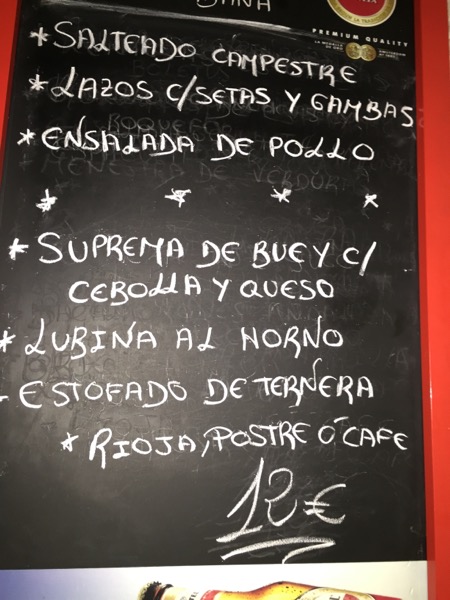 PREMIUM QUALITY
*SALTEADO CAMPESTRE
*LAZOS C/SETAS Y GAMBAS
*ENSALADA DE POLLO
* * * *
*SUPREMA DE BUEY C/
CEBOLLA Y QUESO
*LUBINA AL HORNO
-ESTOFADO DE TERNERA
*RIOJA, POSTRE O CAFE
12€